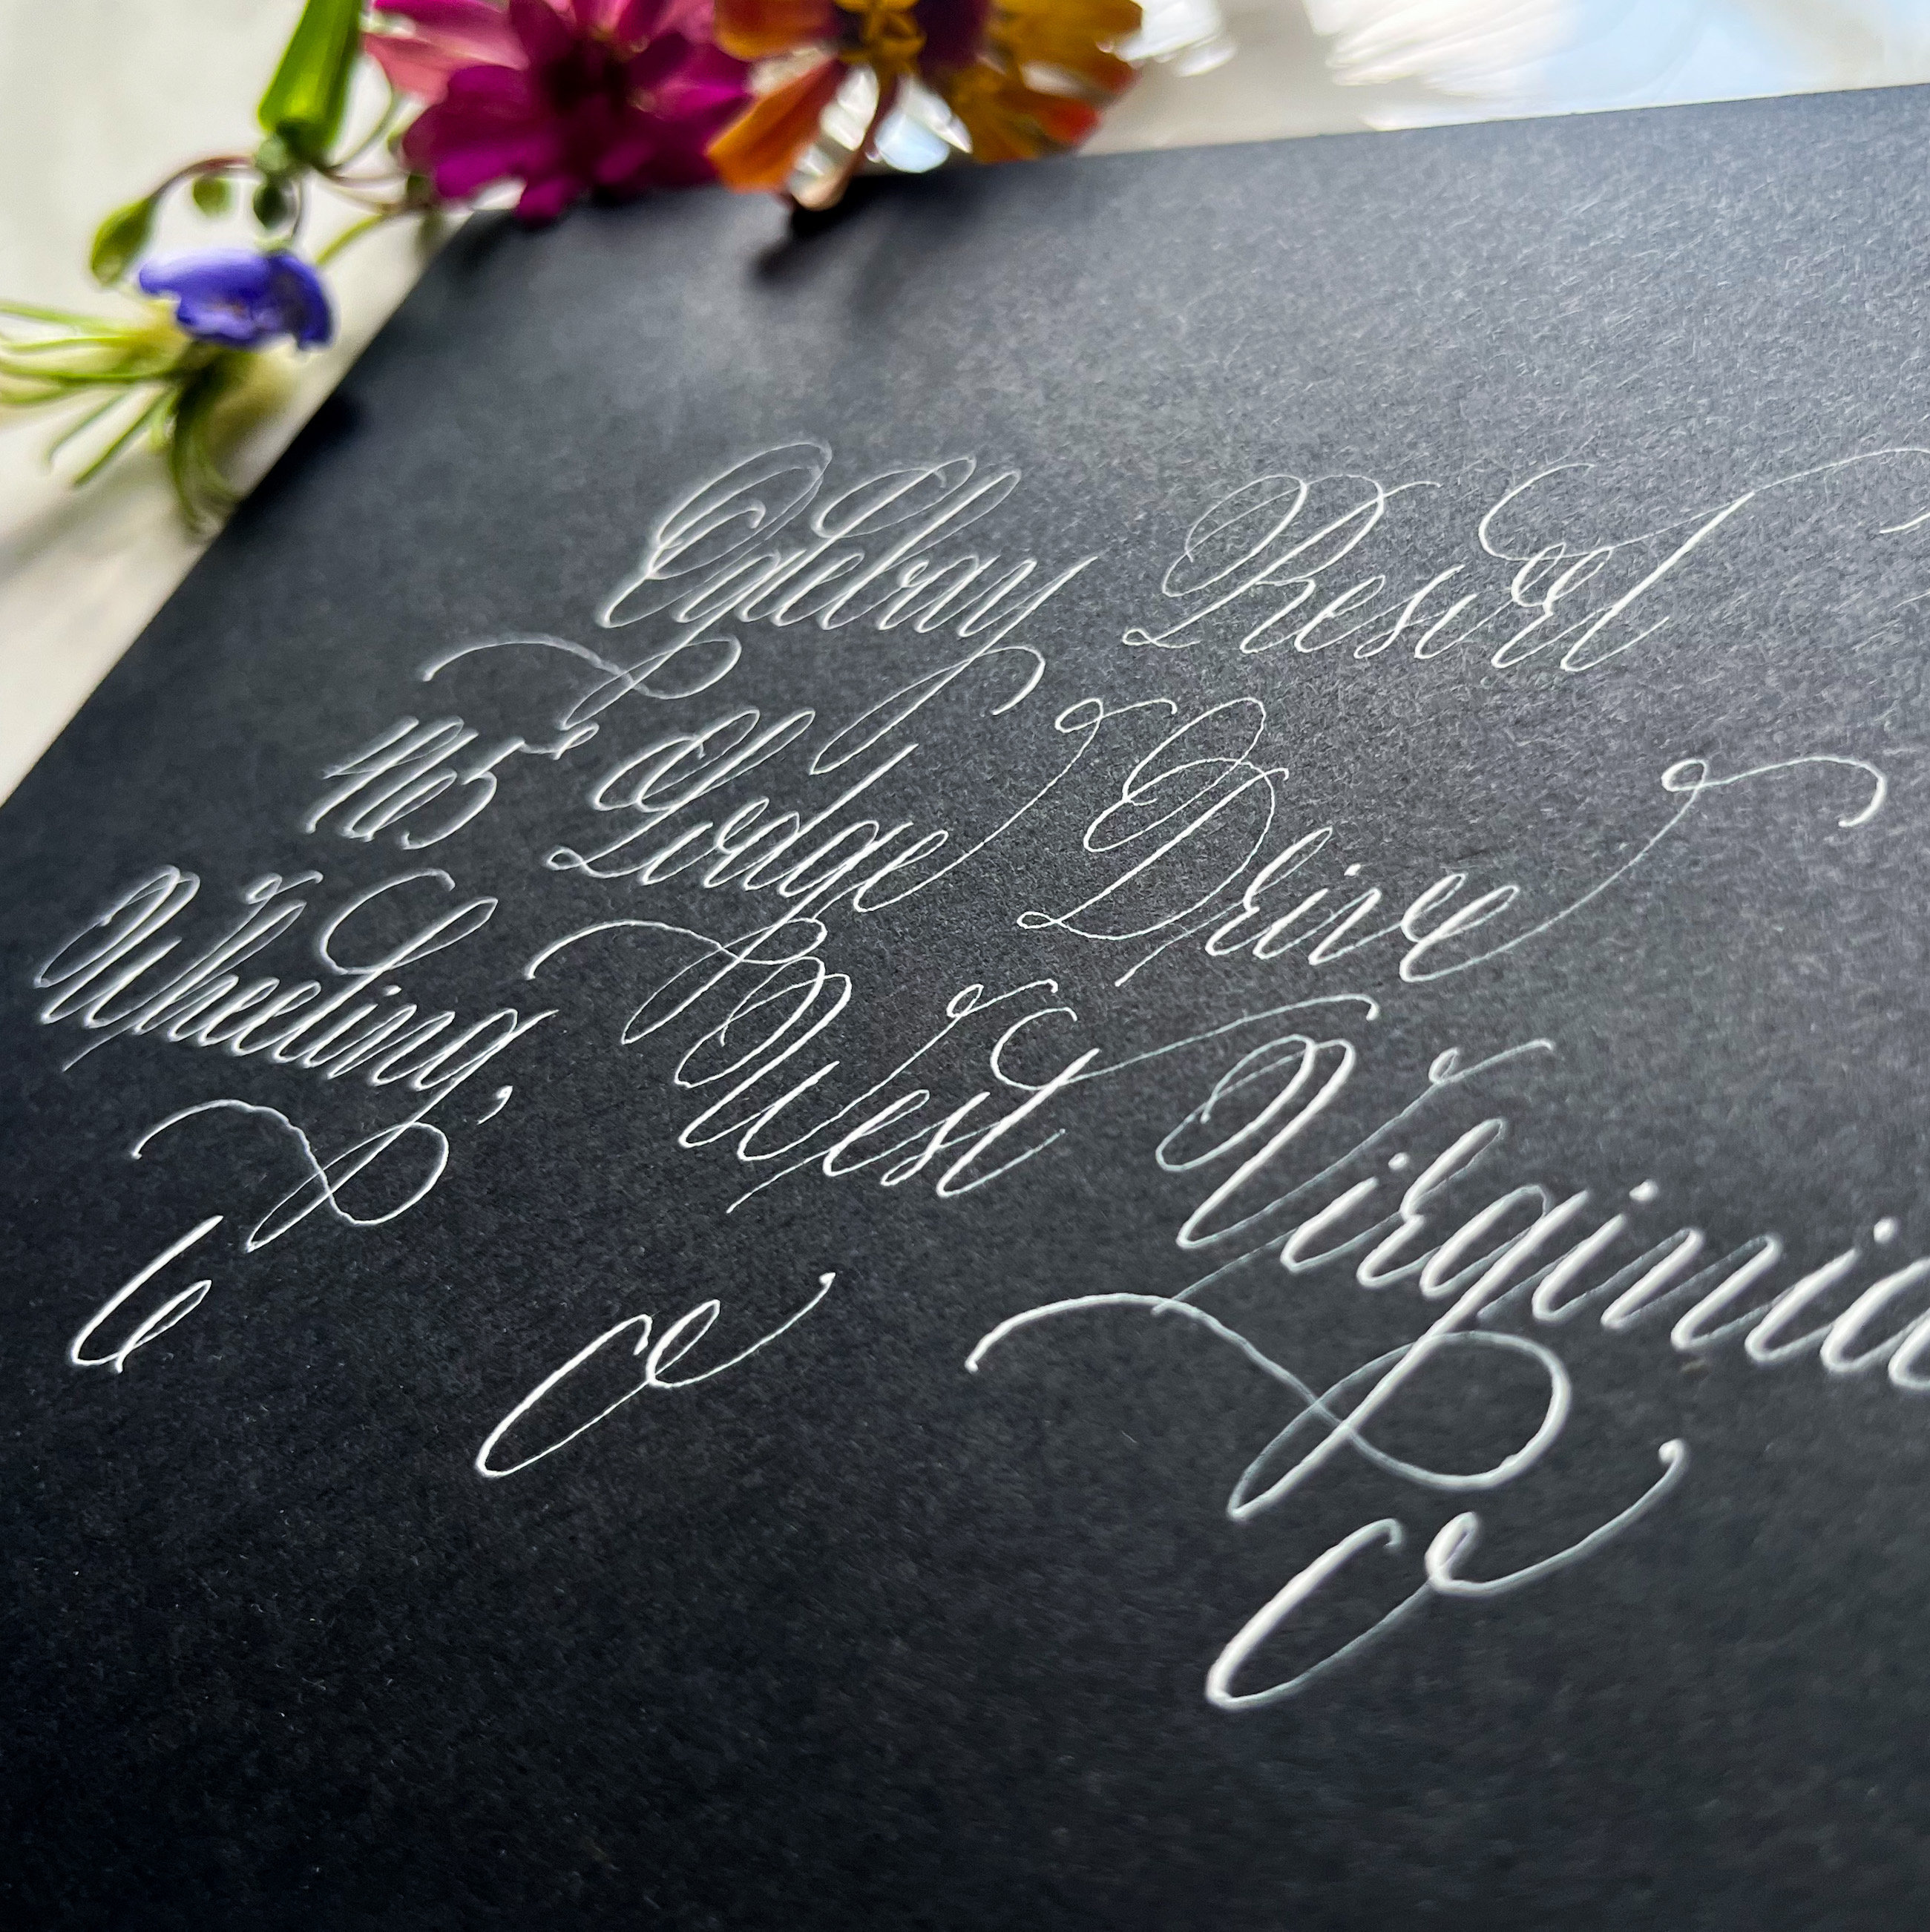 Oglebay Resort
465 Lodge Drive
Wheeling, West Virginia
6 0 0